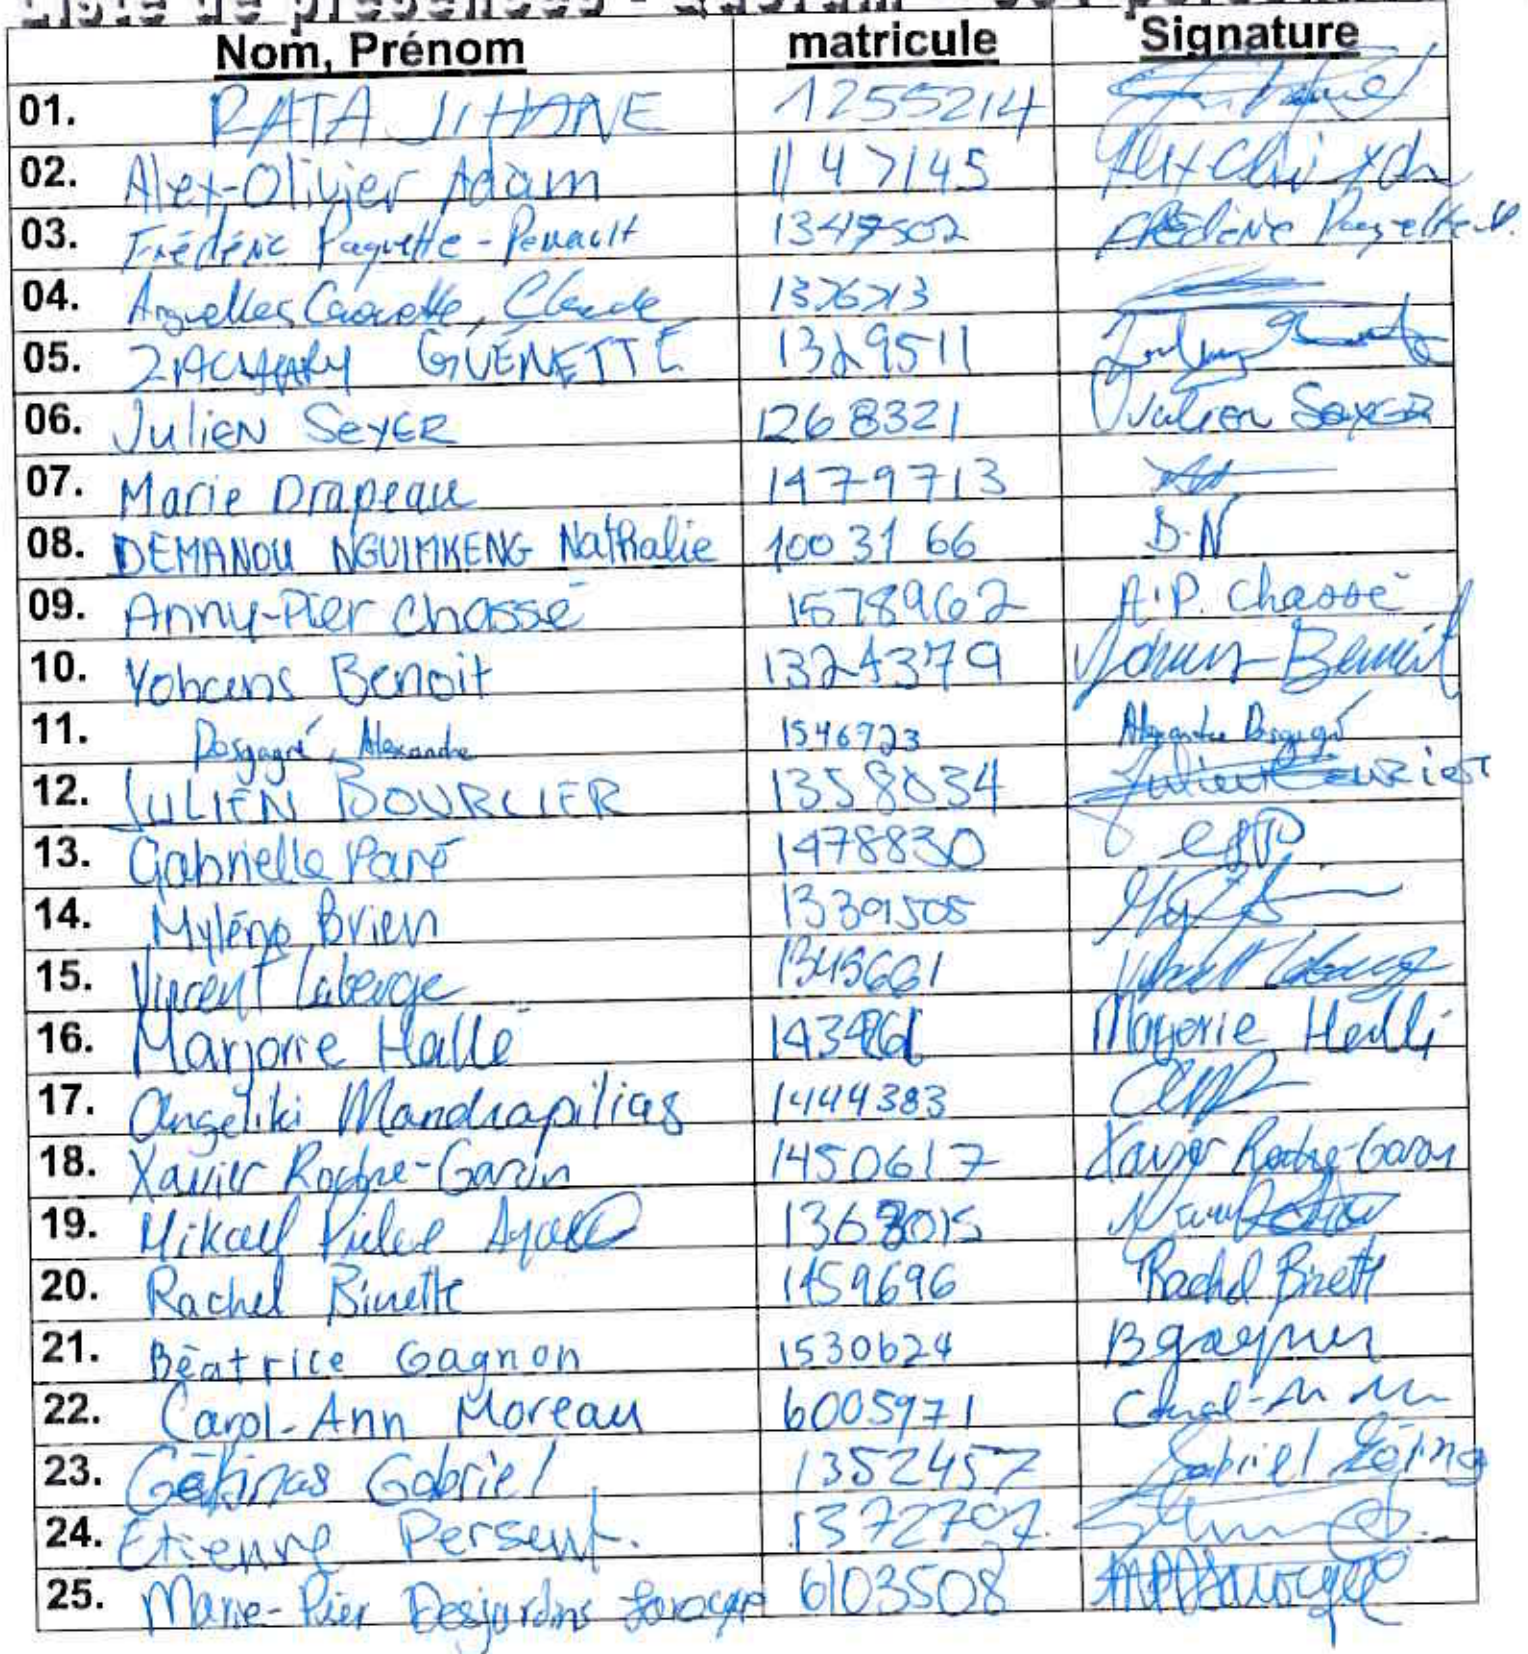 Liste de présences - Quorum
Nom, Prénom matricule Signature
01. RATA JIHANE 1255214
02. Alex-Olivier Adam 1147145
03. Frédéric Paquette-Perrault 1347502 Frédéric Paquette-P.
04. Arguelles Caouette, Claude 1376713
05. ZACHARY GUENETTE 1329511
06. JulieN SeYER 1268321 Julien Seyer
07. Marie Drapeau 1479713
08. DEMANOU NGUIMKENG Nathalie 1003166 D.N
09. Anny-Pier Chassé 1578962 A.P. Chassé
10. Yohans Benoit 1324379 Yohans Benoit
11. Desgagné, Alexandre 1546723 Alexandre Desgagné
12. JULIEN BOURLIER 1358034
13. Gabrielle Paré 1478830
14. Mylène Brien 1339505
15. Vincent Laberge 1345661 Vincent Laberge
16. Marjorie Hallé Marjorie Hallé
17. Angeliki Mandrapilias 1444383
18. Xavier Roctre-Garon 1450617 Xavier Garon
19. Mikaël 1368015
20. Rachel Binette 1459696 Rachel Binette
21. Béatrice Gagnon 1530624 B gagnon
22. Carol-Ann Moreau 6005971
23. Gélinas Gabriel 1352457 Gabriel Gélinas
24. Etienne Persent. 1372707
25. Marie-Pier Desjardins Larocque 6103508